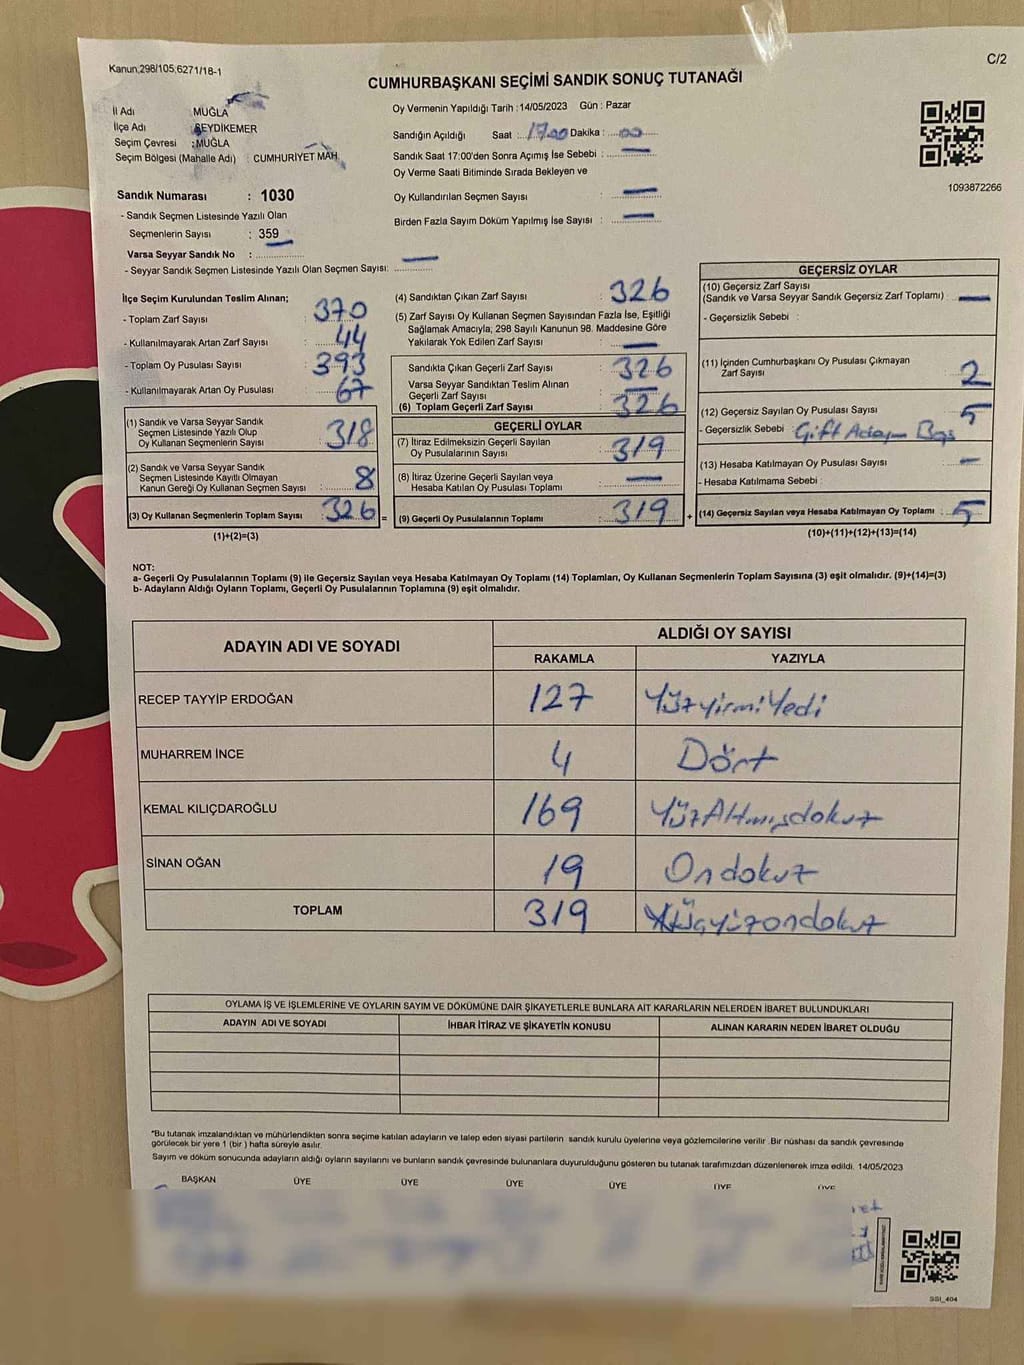 Kanun;298/105;6271/18-1
C/2
CUMHURBAŞKANI SEÇİMİ SANDIK SONUÇ TUTANAĞI
İl Adı MUĞLA
İlçe Adı SEYDİKEMER
Seçim Çevresi :MUĞLA
Seçim Bölgesi (Mahalle Adı) : CUMHURİYET MAH.
Sandık Numarası : 1030
- Sandık Seçmen Listesinde Yazılı Olan
Seçmenlerin Sayısı : 359
Varsa Seyyar Sandık No :
- Seyyar Sandık Seçmen Listesinde Yazılı Olan Seçmen Sayısı:
Oy Vermenin Yapıldığı Tarih :14/05/2023 Gün : Pazar
Sandığın Açıldığı Saat : 1700 Dakika : 00
Sandık Saat 17:00'den Sonra Açımış İse Sebebi : —
Oy Verme Saati Bitiminde Sırada Bekleyen ve
Oy Kullandırılan Seçmen Sayısı : —
Birden Fazla Sayım Döküm Yapılmış İse Sayısı : —
1093872266
İlçe Seçim Kurulundan Teslim Alınan;
- Toplam Zarf Sayısı : 370
- Kullanılmayarak Artan Zarf Sayısı : 44
- Toplam Oy Pusulası Sayısı : 393
- Kullanılmayarak Artan Oy Pusulası : 67
(1) Sandık ve Varsa Seyyar Sandık
Seçmen Listesinde Yazılı Olup
Oy Kullanan Seçmenlerin Sayısı : 318
(2) Sandık ve Varsa Seyyar Sandık
Seçmen Listesinde Kayıtlı Olmayan
Kanun Gereği Oy Kullanan Seçmen Sayısı : 8
(3) Oy Kullanan Seçmenlerin Toplam Sayısı : 326 =
(1)+(2)=(3)
(4) Sandıktan Çıkan Zarf Sayısı : 326
(5) Zarf Sayısı Oy Kullanan Seçmen Sayısından Fazla İse, Eşitliği
Sağlamak Amacıyla; 298 Sayılı Kanunun 98. Maddesine Göre
Yakılarak Yok Edilen Zarf Sayısı : —
Sandıkta Çıkan Geçerli Zarf Sayısı : 326
Varsa Seyyar Sandıktan Teslim Alınan
Geçerli Zarf Sayısı : —
(6) Toplam Geçerli Zarf Sayısı : 326
GEÇERLİ OYLAR
(7) İtiraz Edilmeksizin Geçerli Sayılan
Oy Pusulalarının Sayısı : 319
(8) İtiraz Üzerine Geçerli Sayılan veya
Hesaba Katılan Oy Pusulası Toplamı : —
(9) Geçerli Oy Pusulalarının Toplamı : 319 +
GEÇERSİZ OYLAR
(10) Geçersiz Zarf Sayısı
(Sandık ve Varsa Seyyar Sandık Geçersiz Zarf Toplamı) : —
- Geçersizlik Sebebi :
(11) İçinden Cumhurbaşkanı Oy Pusulası Çıkmayan
Zarf Sayısı : 2
(12) Geçersiz Sayılan Oy Pusulası Sayısı : 5
- Geçersizlik Sebebi :
(13) Hesaba Katılmayan Oy Pusulası Sayısı : —
- Hesaba Katılmama Sebebi :
(14) Geçersiz Sayılan veya Hesaba Katılmayan Oy Toplamı : 5
(10)+(11)+(12)+(13)=(14)
NOT:
a- Geçerli Oy Pusulalarının Toplamı (9) ile Geçersiz Sayılan veya Hesaba Katılmayan Oy Toplamı (14) Toplamları, Oy Kullanan Seçmenlerin Toplam Sayısına (3) eşit olmalıdır. (9)+(14)=(3)
b- Adayların Aldığı Oyların Toplamı, Geçerli Oy Pusulalarının Toplamına (9) eşit olmalıdır.
ADAYIN ADI VE SOYADI ALDIĞI OY SAYISI
RAKAMLA YAZIYLA
RECEP TAYYİP ERDOĞAN 127 YüzyirmiYedi
MUHARREM İNCE 4 Dört
KEMAL KILIÇDAROĞLU 169 YüzAltmışdokuz
SİNAN OĞAN 19 Ondokuz
TOPLAM 319 Üçyüzondokuz
OYLAMA İŞ VE İŞLEMLERİNE VE OYLARIN SAYIM VE DÖKÜMÜNE DAİR ŞİKAYETLERLE BUNLARA AİT KARARLARIN NELERDEN İBARET BULUNDUKLARI
ADAYIN ADI VE SOYADI İHBAR İTİRAZ VE ŞİKAYETİN KONUSU ALINAN KARARIN NEDEN İBARET OLDUĞU
"Bu tutanak imzalandıktan ve mühürlendikten sonra seçime katılan adayların ve talep eden siyasi partilerin sandık kurulu üyelerine veya gözlemcilerine verilir .Bir nüshası da sandık çevresinde
görülecek bir yere 1 (bir ) hafta süreyle asılır.
Sayım ve döküm sonucunda adayların aldığı oyların sayılarını ve bunların sandık çevresinde bulunanlara duyurulduğunu gösteren bu tutanak tarafımızdan düzenlenerek imza edildi. 14/05/2023
BAŞKAN ÜYE ÜYE ÜYE ÜYE ÜYE ÜYE
SSI_404